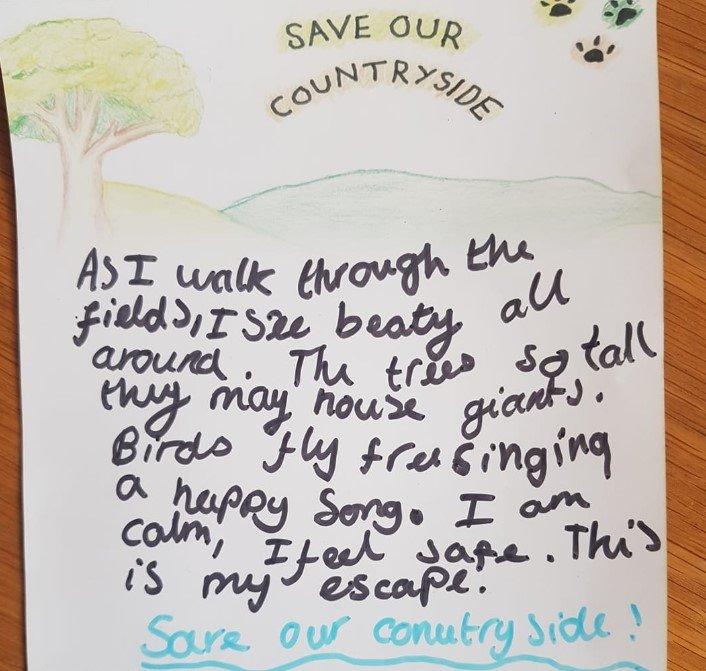 SAVE OUR
COUNTRYSIDE
As I walk through the
fields, I see beaty all
around. The trees so tall
they may house giants.
Birds fly free singing
a happy song. I am
calm, I feel safe. This
is my escape.
Save our conutry side!